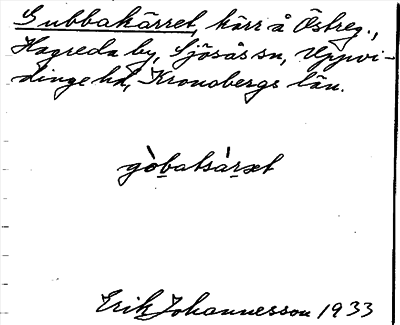 Gubbakärret, kärr å Östreg.,
Hagreda by, Sjösås sn, Uppvi-
dinge hd, Kronobergs län.
Erik Johannesson 1933